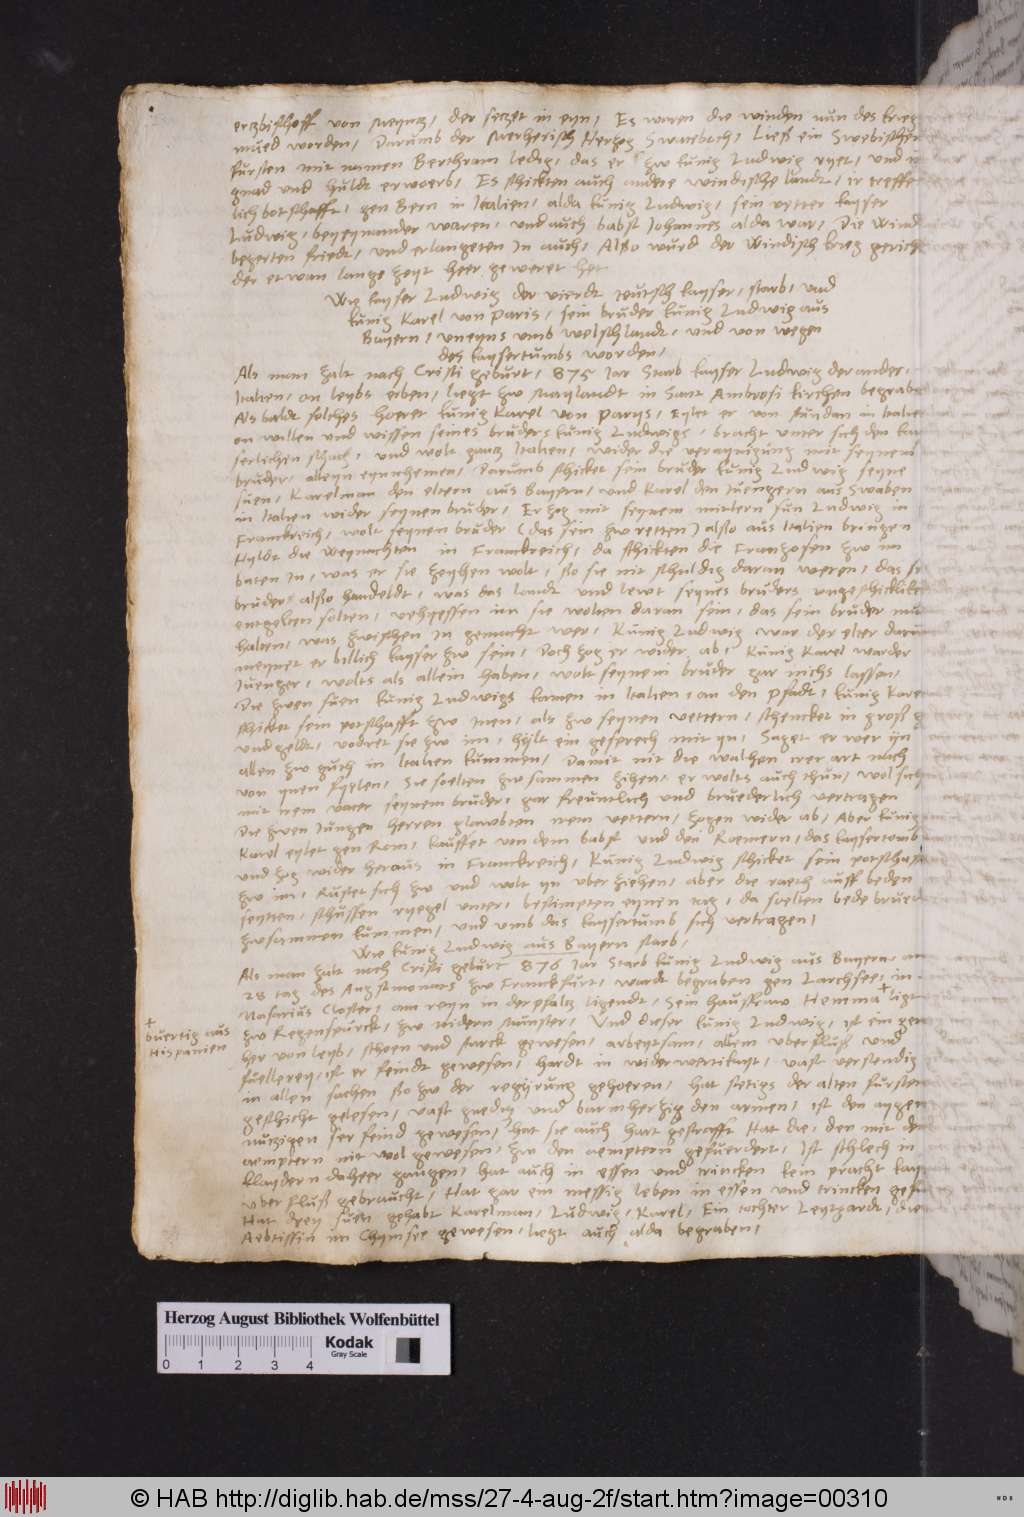 ertzbischoff von Meyntz, der setzet in eyn, Es waren die winden nun des krieg
mued worden, Darumb der Merherisch Hertzog Swateboch, Ließ ein Swebischen
fürsten mit namen Berthram ledig, das er zw künig Ludwig ryet, und
gnad und huldt erwoerb, Es schickten auch andere windische landt, ir treffe
lich botschafft, gen Bern in Italien, alda künig Ludwig, sein vetter kayser
Ludwig, beyeynander waren, und auch babst Johannes alda war, Die Wind
begerten friedt, und erlangeten In auch, Alßo wurd der Windisch krieg gericht
der etwan lange zeyt heer geweret het
Wie kayser Ludwig der vierdt teutsch kayser, starb, und
künig Karel von Paris, sein bruder künig Ludwig aus
Bayern, uneyns umb welschlandt, und von wegen
des kaysertumbs worden,
Als man zalt nach Cristi geburt, 875 Jar Starb kayser Ludwig der ander,
Italien, on leybs erben, liegt zw Maylandt in Sant Ambrosi kirchen begrab
Als baldt solches hoeret künig Karel von Parys, Eylet er von stundan in Italie
on willen und wissen seines bruders künig Ludwigs, bracht unter sich den kay
serlichen schatz, und wolt gantz Italien, wider die veraynigung mit seynem
bruder, alleyn eynnehemen, Darumb schicket sein bruder künig Ludwig seyne
süen, Karelman den eltern aus Bayern, und Karel den Jüengern aus Swaben
in Italien wider seynen bruder, Er zog mit seynem mittern sun Ludwig in
Franckreich, wolt seynen bruder (das sein zw retten) alßo aus Italien bringen
Hyldt die Weynachten in Franckreich, da schickten die Franzosen zw im
baten In, was er sie zeyhen wolt, ßo sie nit schuldig daran weren, das
bruder alßo handeldt, was das landt und lewt seynes bruders ungeschicklikeit
entgelten solten, sie wolten daran sein, das sein bruder
halten, was zwischen In gemacht wer, Künig Ludwig war der elter
meynet er billich kayser zw sein, Doch zog er wider ab, Künig Karel war der
Juenger, wolts als allein haben, wolt seynem bruder gar nichs lassen,
Die zwen süen künig Ludwigs kamen in Italien, an den Pfadt, künig Kare
schicket sein potschafft zw Inen, als zw seynen vettern, schencket in groß
und geldt, vodret sie zw im, hylt ein gesprech mit yn, Saget er wer yn
allen zw guth in Italien kummen, Damit nit die walhen irer art nach
von ynen fyelen, Sie soelten zw sammen zihen, er wolts auch thun, wol sich
mit irem vater seynem bruder, gar freuntlich und bruederlich vertragen
Die zwen Jungen herren glawbten irem vettern, zogen wider ab, Aber künig
Karel eylet gen Rom, kauffet von dem babst und den Roemern, das kaysertumb
und zog wider heraus in Franckreich, Künig Ludwig schicket sein potscha
zw im, Rustet sich zw und wolt yn uberziehen, aber die raeth auff beden
seytten, schussen ryegel unter, bestimpten eynen tag, da soelten bede brued
zwsammen kummen, und umb das kaysertumb sich vertragen,
Wie künig Ludwig aus Bayern starb,
Als man zalt nach Cristi geburt 876 Jar Starb künig Ludwig aus Bayern, am
28 tag des Augstmonats zw Franckfurt, wardt begraben gen Larchsee, in
Nasarius Closter, am reyn in der pfaltz ligendt, Sein hausfraw Hemma + ligt
zw Regenspurck, zw nidern Münster, Und dieser künig Ludwig, ist ein
her von leyb, schoen und starck gewesen, arbeytsam, allem uberfluß und
fuellerey, ist er feindt gewesen, hardt in widerwertikeyt, vast verstendig
in allen sachen ßo zw der regyrung gehoeren, hat stetigs der alten fursten
geschicht gelesen, vast gnedig und barmherzig den armen, ist den aygen
nutzigen ser feind gewesen, hat sie auch hart gestrafft Hat die, den mit
aemptern nit wol gewesen, zw den aemptern gefuerdert, Ist schlech in
klaydern daheer gangen, hat auch in essen und trincken kein pracht kay
uberfluß gebraucht, Hat gar ein messig leben in essen und trincken gefu
Hat drey süen gehabt Karelman, Ludwig, Karel, Ein tochter Leytgardt, die
Aebtissin im Chymsee gewesen, liegt auch alda begraben,
+
buertig aus
Hispanien
Herzog August Bibliothek Wolfenbüttel
Kodak
Gray Scale
0 1 2 3 4
© HAB http://diglib.hab.de/mss/27-4-aug-2f/start.htm?image=00310